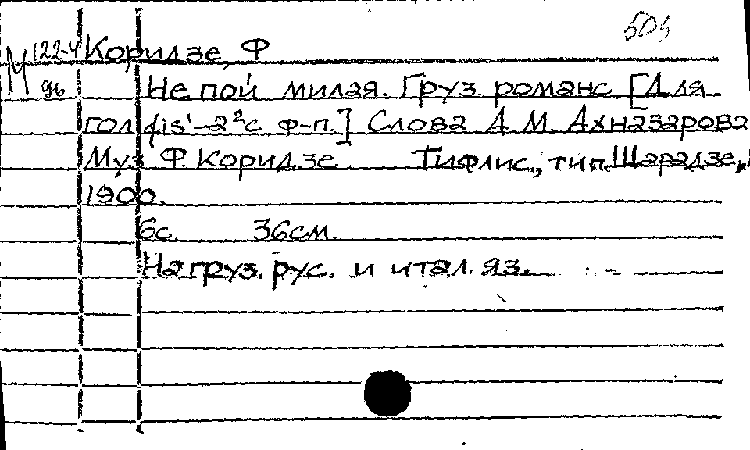 М 122-4 96
Коридзе, Ф
Не пой милая. Груз. романс [Для
гол. fis'-a²с ф-п.] Слова А. М. Ахназарова
Муз Ф. Коридзе Тифлис, тип. Шарадзе,
1900.
6с 36см.
На груз. рус. и итал. яз.